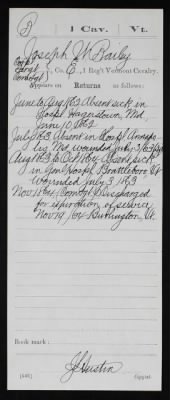 B | 1 Cav. | Vt.
Joseph W. Bailey
Corp
Sergt
Com Sgt, Co. C, 1 Reg't Vermont Cavalry.
Appears on Returns as follows:
June to Aug 1862 Absent sick in
Hospl Hagerstown, Md,
June 10, 1862
July 1863 Absent in Hospl Annapo-
lis Md, wounded July 3/63
Aug 1863 to Oct 1864, Absent sick
in Gen Hospl Brattleboro Vt
wounded July 3, 1863
Nov 1864, (Com Sgt) Discharged
for expiration of service
Nov 19/64 Burlington Vt.
Book mark:
J Austin
Copyist.